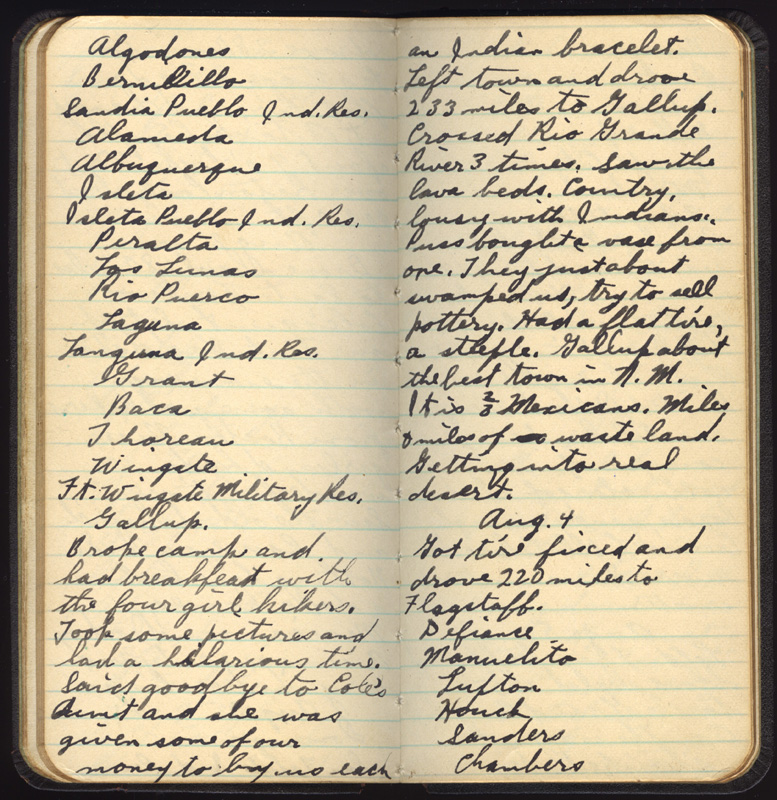 Algodones
Bernilillo
Sandia Pueblo Ind. Res.
Alameda
Albuquerque
Isleta
Isleta Pueblo Ind. Res.
Peralta
Los Lunas
Rio Puerco
Laguna
Languna Ind. Res.
Grant
Baca
Thoreau
Wingate
Ft. Wingate Military Res.
Gallup.
Brope camp and
had breakfeast with
the four girl hikers.
Took some pictures and
had a hilarious time.
Said goodbye to Cole's
Aunt and she was
given some of our
money to buy us each
an Indian bracelet.
Left town and drove
233 miles to Gallup.
Crossed Rio Grande
River 3 times. Saw the
lava beds. Country,
lousy with Indians.
Puss bought a vase from
one. They just about
swamped us, try to sell
pottery. Had a flat tire,
a steeple. Gallup about
the best town in N. M.
It is 2/3 Mexicans. Miles
& miles of waste land.
Getting into real
desert.
Aug. 4
Got tire fixed and
drove 220 miles to
Flagstaff.
Defiance
Manuelito
Lupton
Houck
Sanders
Chambers